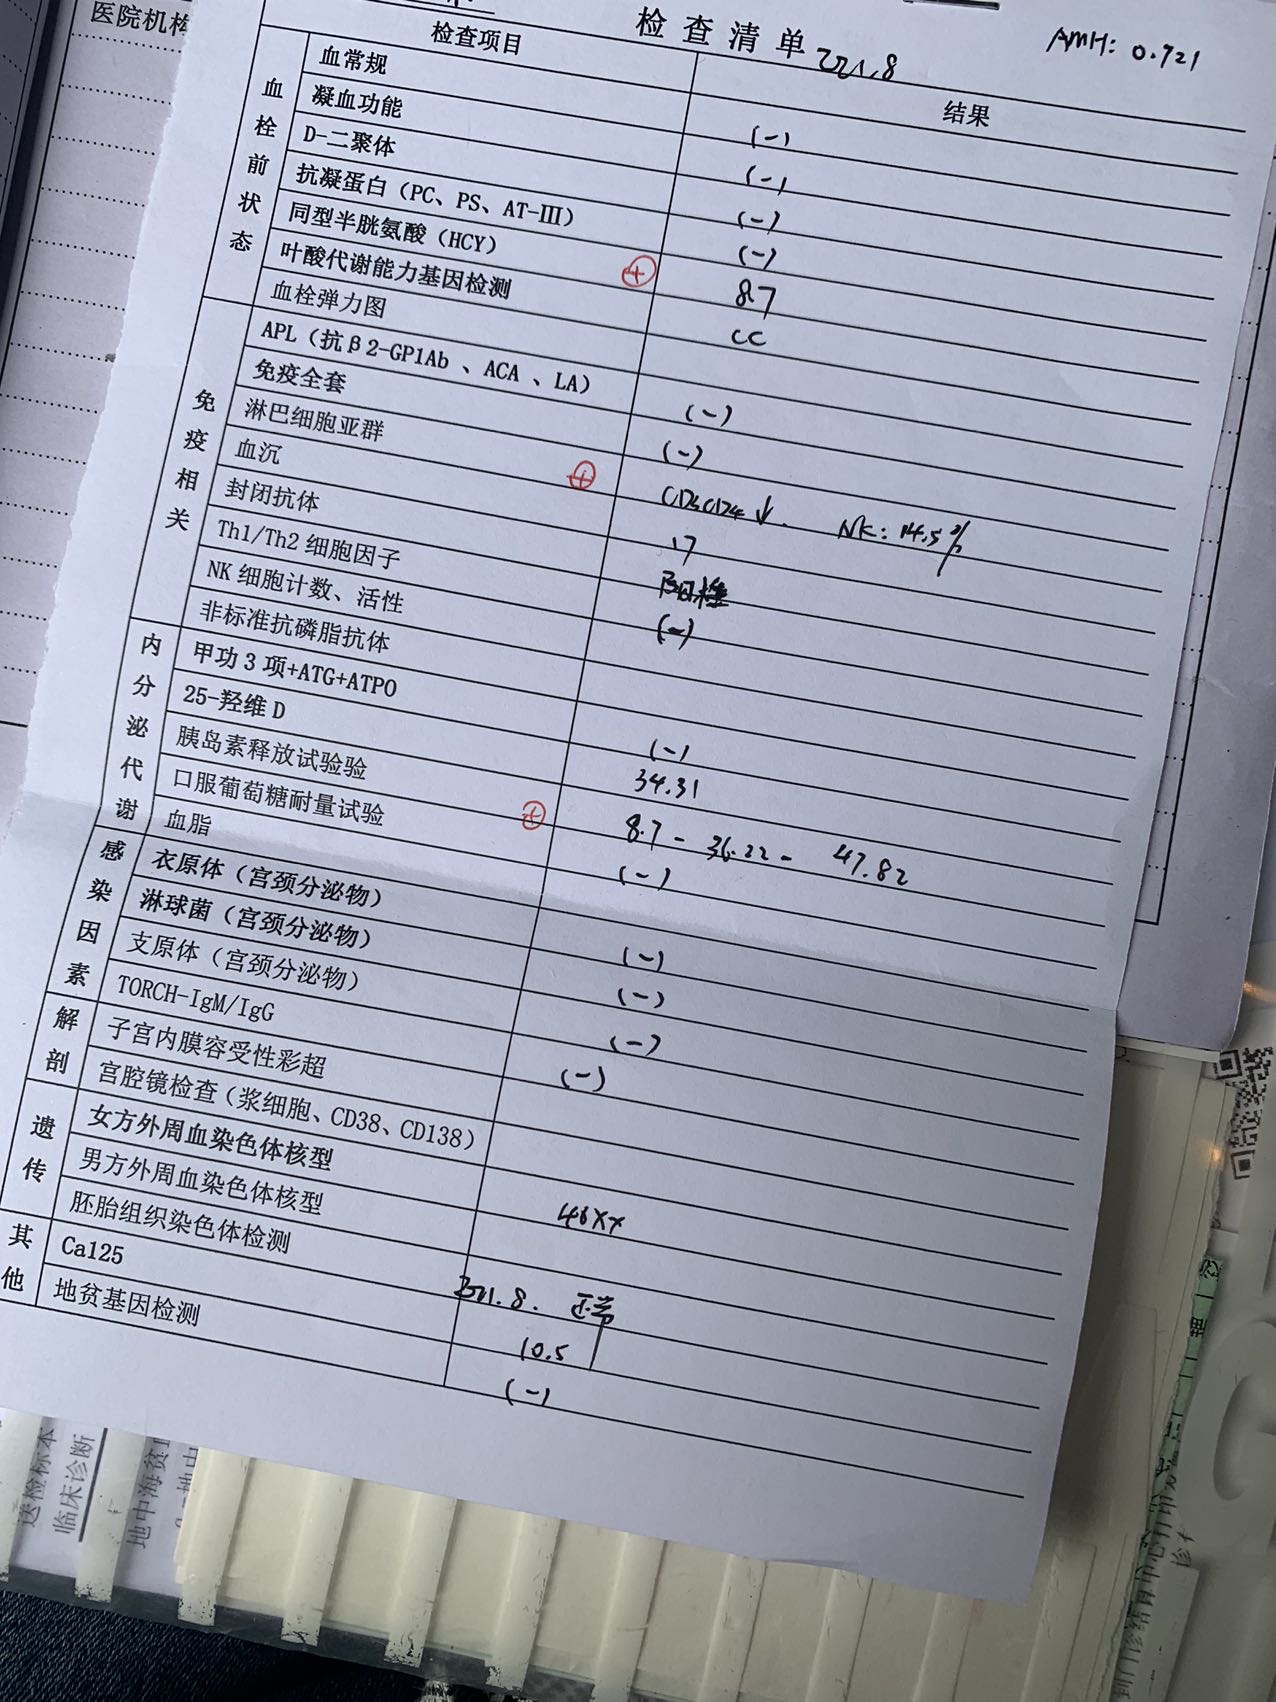 医院机构
检查清单 2021.8
AMH: 0.721
检查项目
结果
血栓前状态
血常规 (-)
凝血功能 (-)
D-二聚体 (-)
抗凝蛋白（PC、PS、AT-Ⅲ） (-)
同型半胱氨酸（HCY） 8.7
叶酸代谢能力基因检测 + CC
血栓弹力图
免疫相关
APL（抗β2-GP1Ab 、ACA 、LA） (-)
免疫全套 (-)
淋巴细胞亚群 + CD3CD4↓. NK: 14.5%
血沉 17
封闭抗体 阳性
Th1/Th2 细胞因子 (-)
NK 细胞计数、活性
非标准抗磷脂抗体
内分泌代谢
甲功 3 项+ATG+ATPO (-)
25-羟维 D 34.31
胰岛素释放试验验 + 8.7 - 36.22 - 47.82
口服葡萄糖耐量试验 (-)
血脂
感染因素
衣原体（宫颈分泌物） (-)
淋球菌（宫颈分泌物） (-)
支原体（宫颈分泌物） (-)
TORCH-IgM/IgG (-)
解剖
子宫内膜容受性彩超
宫腔镜检查（浆细胞、CD38、CD138）
遗传
女方外周血染色体核型 46XX
男方外周血染色体核型
胚胎组织染色体检测 2021.8. 正常
其他
Ca125 10.5
地贫基因检测 (-)
送检标本
临床诊断
地中海贫